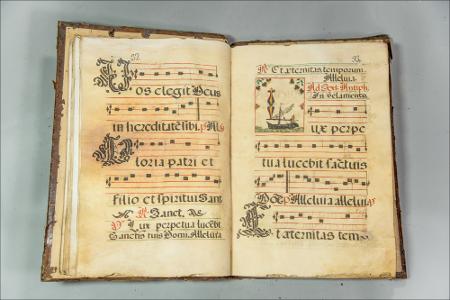 Vos elegit Deus
in hereditate sibi. All.
Gloria patri et
filio et spiritui Sanc
R. Sanct.
Lux perpetua lucebit
Sanctis tuis Domi. Alleluia
R. Et æternitas temporum
Alleluia
Ad Sext. Antiph.
In velamento
Lux perpe
tua lucebit sactuis
Do. Alleluia alleluia
Et æternitas temp